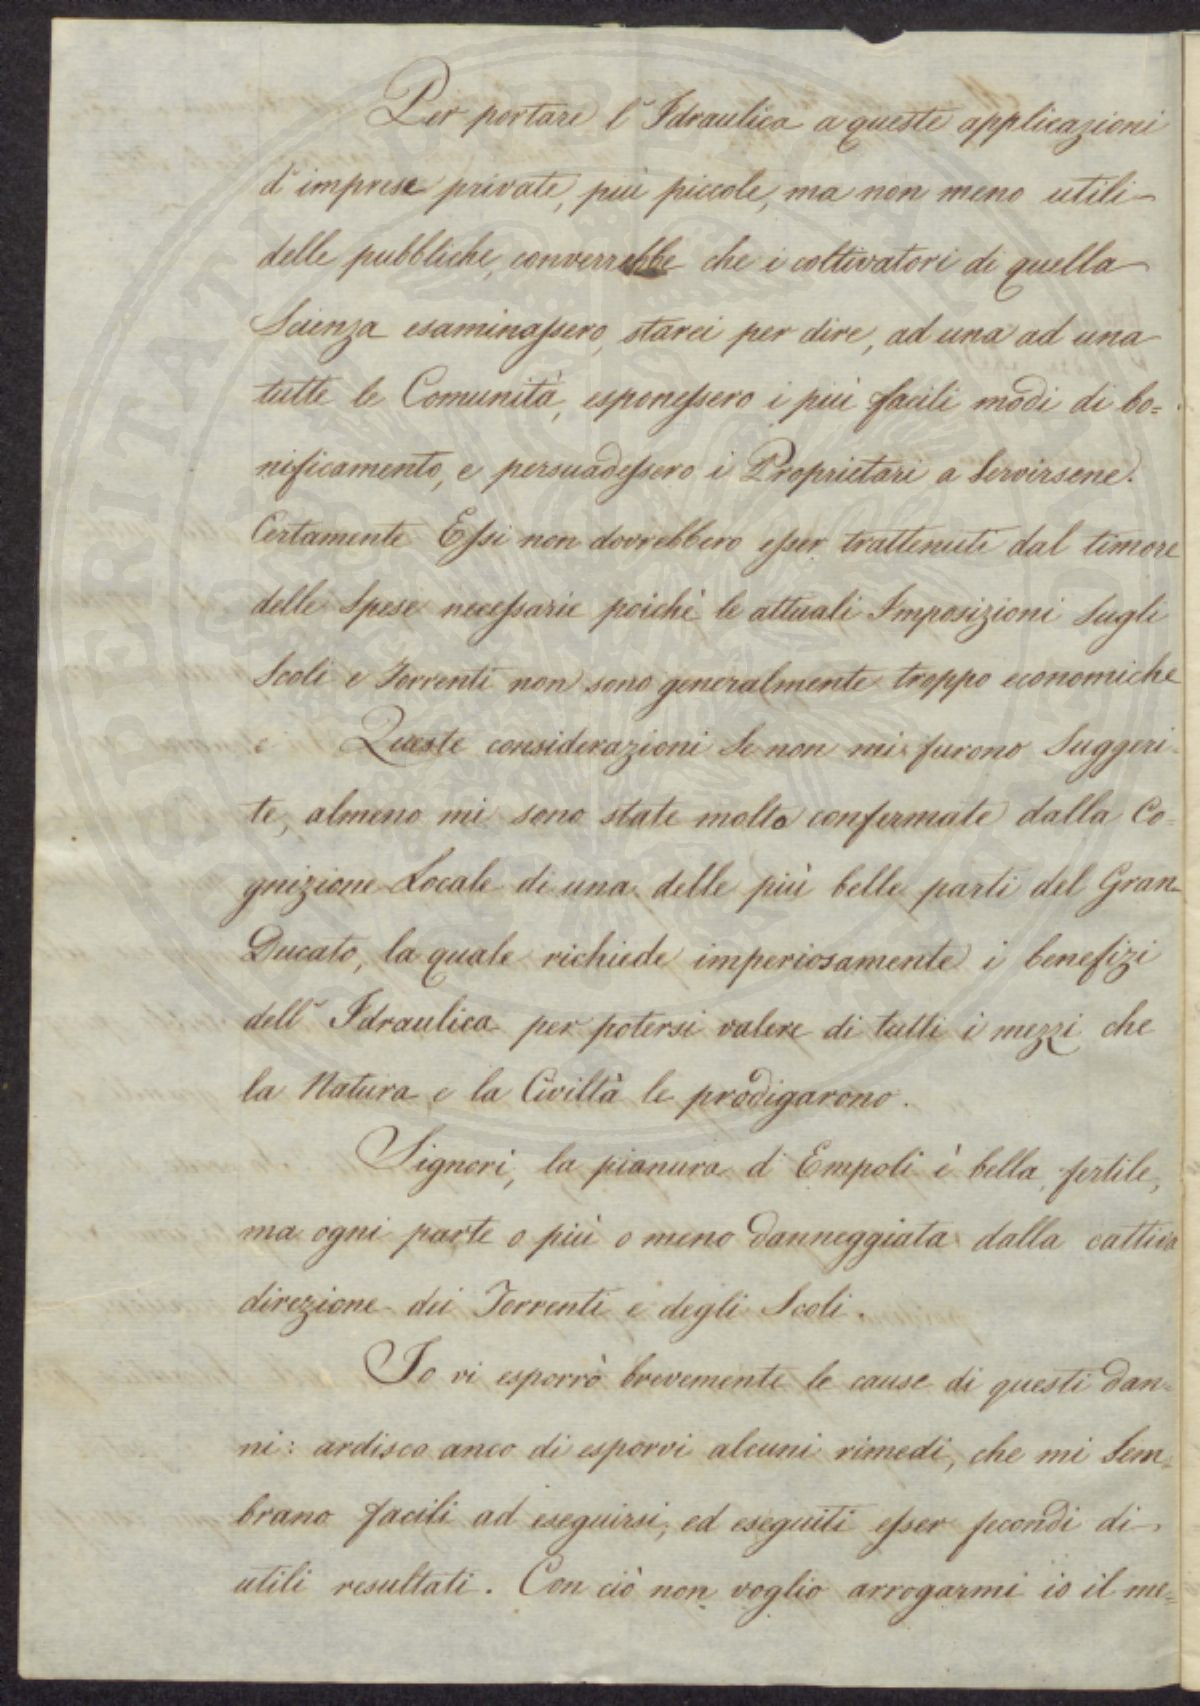 Per portare l'Idraulica a queste applicazioni
d'imprese private, più piccole, ma non meno utili
delle pubbliche, converrebbe che i coltivatori di quella
Scienza esaminassero, starei per dire, ad una ad una
tutte le Comunità, esponessero i più facili modi di bo=
nificamento, e persuadessero i Proprietari a Servirsene.
Certamente Essi non dovrebbero esser trattenuti dal timore
delle Spese necessarie poichè le attuali Imposizioni Sugli
Scoli e Torrenti non sono generalmente troppo economiche
Queste considerazioni Se non mi furono Suggeri=
te, almeno mi sono state molto confermate dalla Co=
gnizione Locale di una delle più belle parti del Gran
Ducato, la quale richiede imperiosamente i benefizi
dell'Idraulica per potersi valere di tutti i mezzi che
la Natura e la Civiltà le prodigarono.
Signori, la pianura d'Empoli è bella, fertile,
ma ogni parte o più o meno danneggiata dalla cattiva
direzione dei Torrenti e degli Scoli.
Io vi esporrò brevemente le cause di questi dan=
ni: ardisco anco di esporvi alcuni rimedi, che mi Sem=
brano facili ad eseguirsi, ed eseguiti esser fecondi di
utili resultati. Con ciò non voglio arrogarmi io il me=